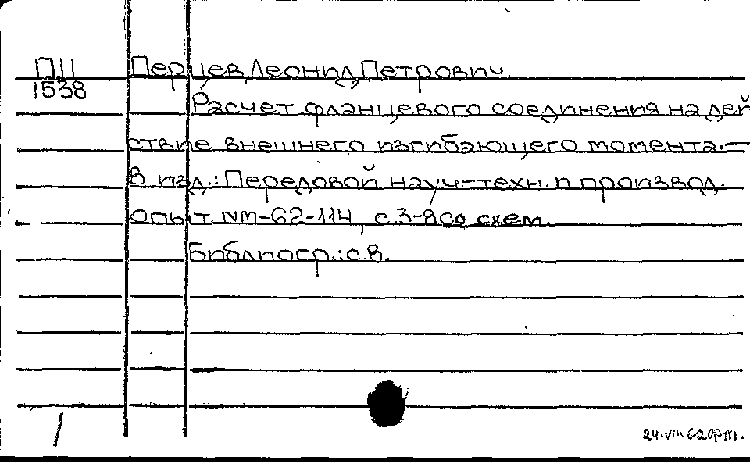 ПII Перцев Леонид Петрович.
1538 Расчет фланцевого соединения на дей
ствие внешнего изгибающего момента.—
В изд.: Передовой науч-техн. и производ.
опыт №М-62-114, с.3-8 со схем.
Библиогр.: с.8.